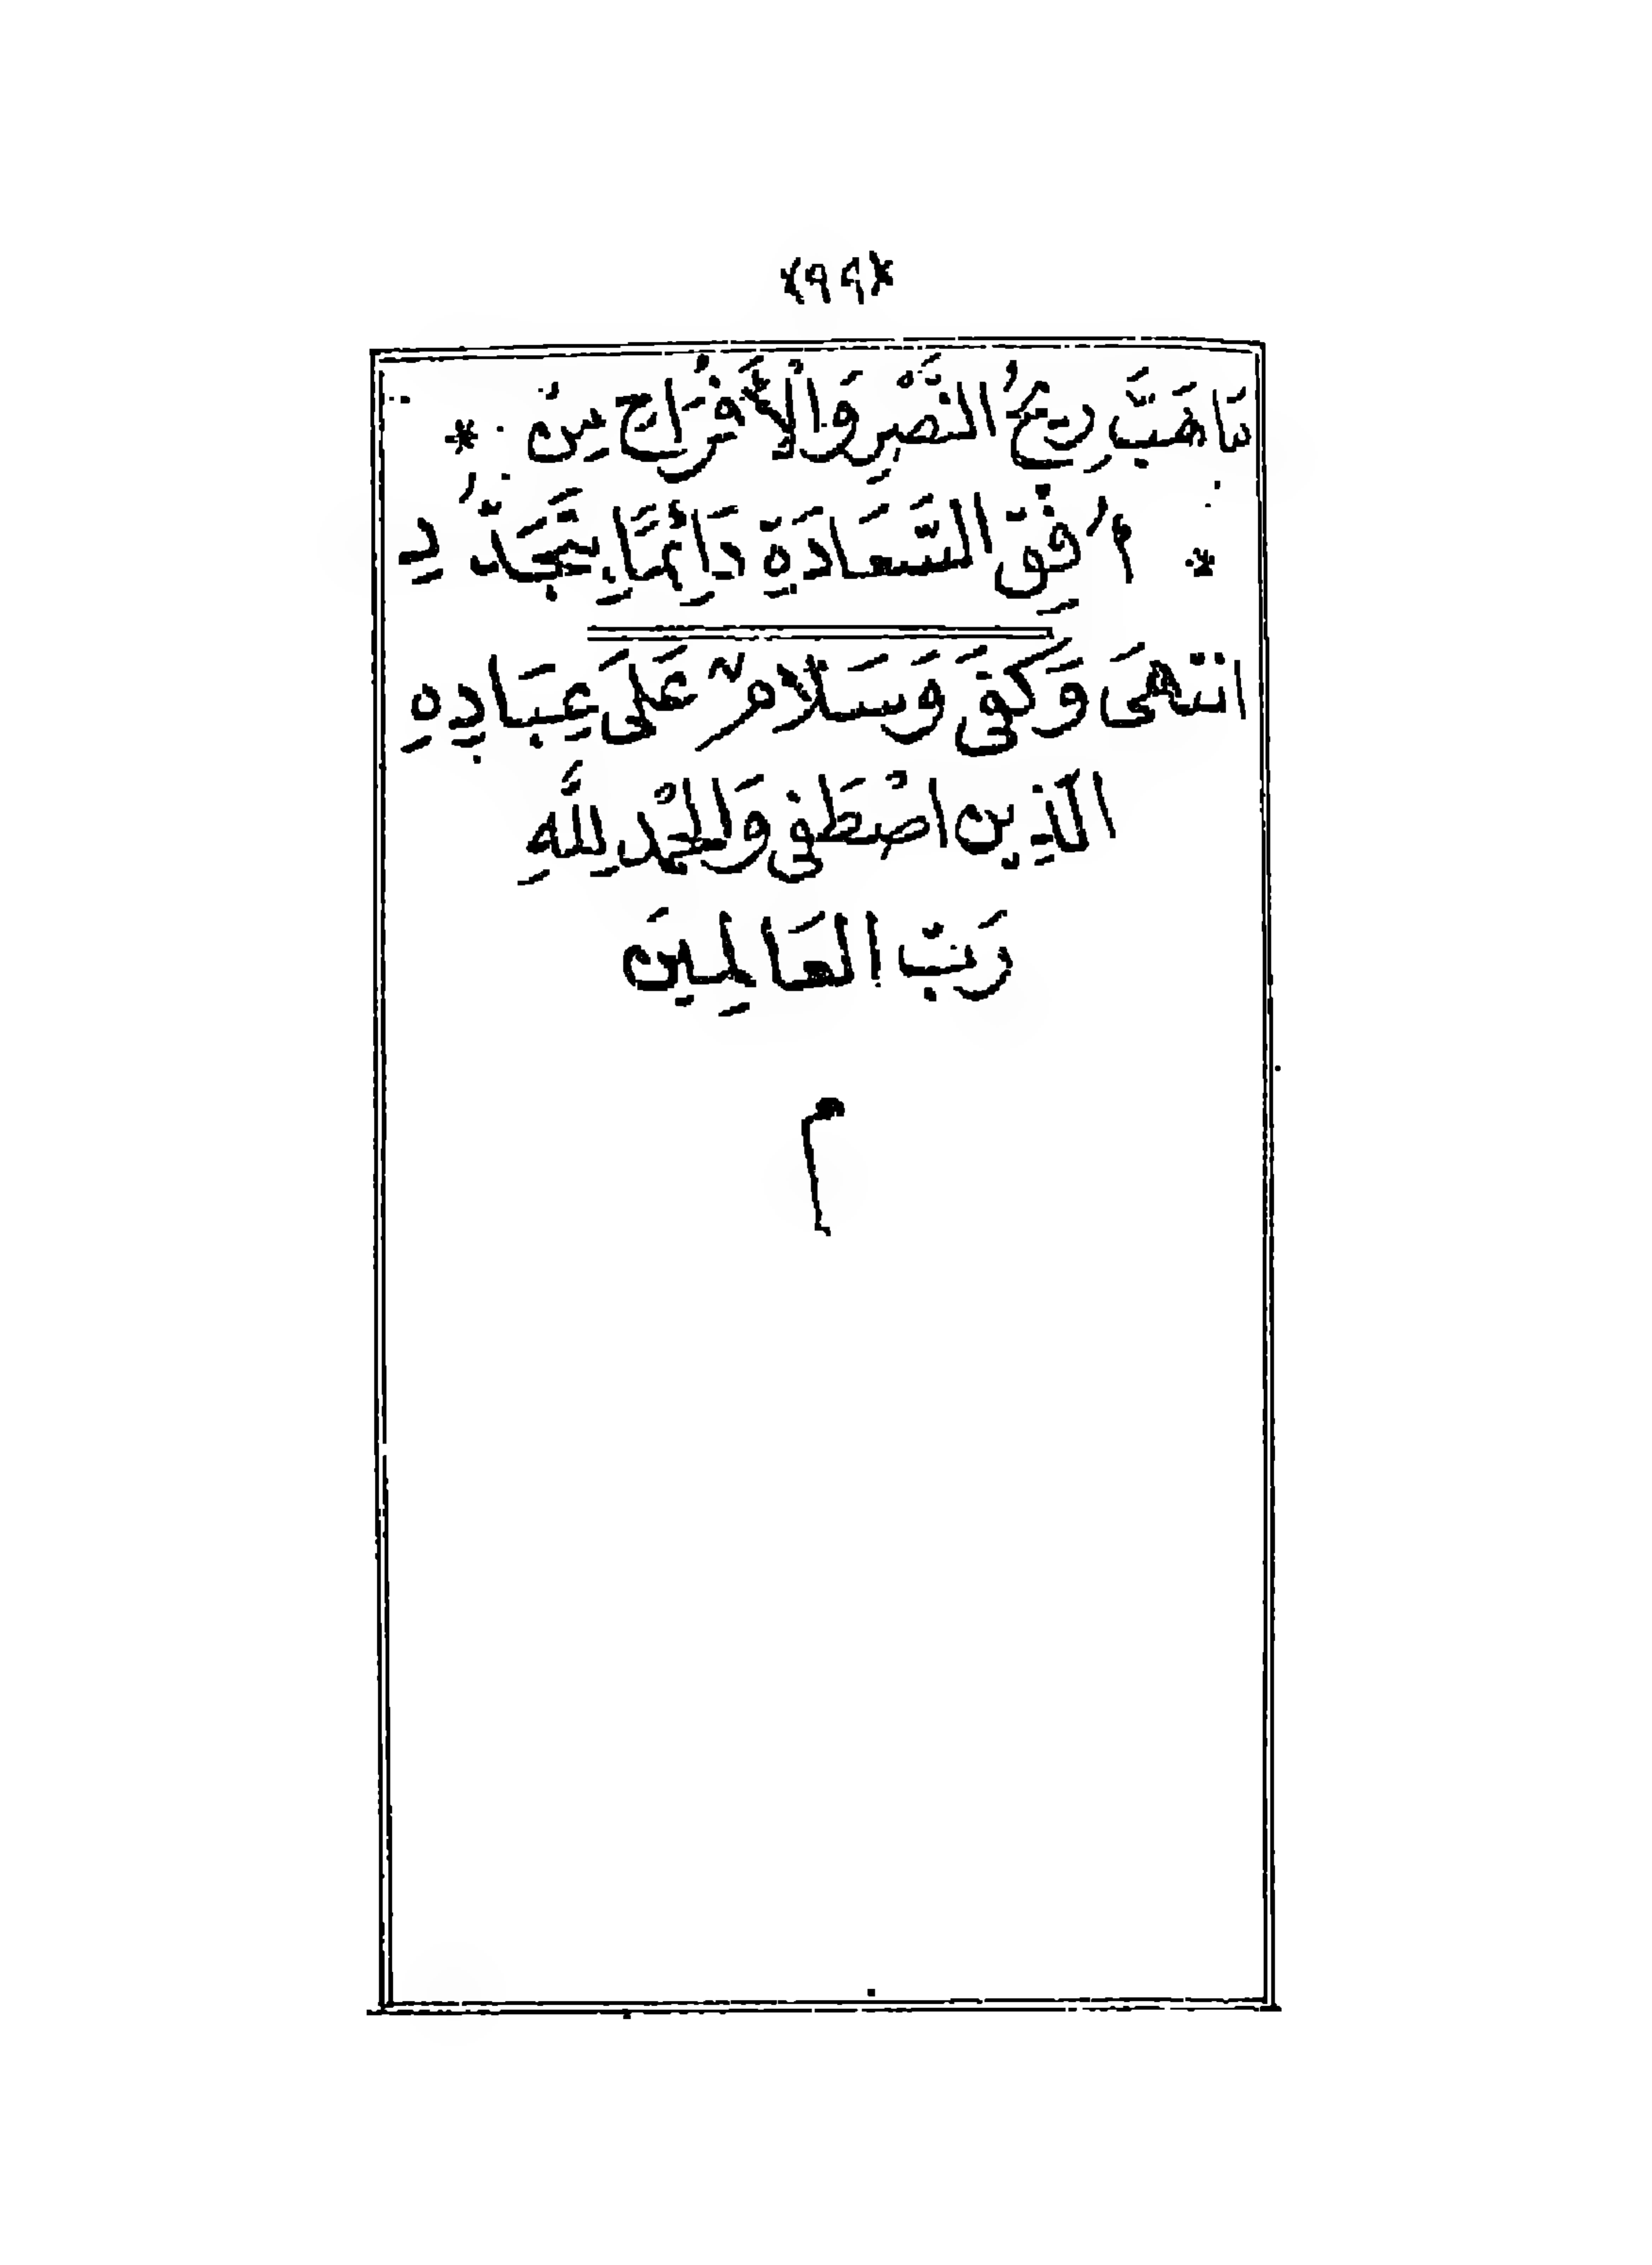 ﴿٩٩﴾
مَا هَبَّ رِيحُ النَّصْرِ وَالْأَفْرَاحِ مِنْ *
* أُفُقِ السَّعَادَةِ دَائِمًا بِتَجَدُّدِ
انتهَى وَكَفَى وَسَلَامٌ عَلَى عِبَادِهِ
الَّذِينَ اصْطَفَى وَالْحَمْدُ لِلَّهِ
رَبِّ الْعَالَمِينَ
م